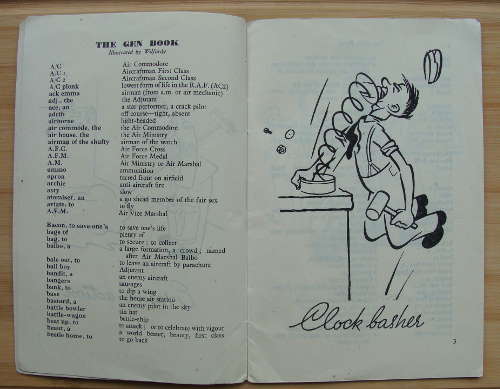 THE GEN BOOK
Illustrated by
A/C Air Commodore
A/C 1 Aircraftman First Class
A/C 2 Aircraftman Second Class
A/C plonk lowest form of life in the R.A.F. (AC2)
ack emma airman (from a.m. or air mechanic)
adj., the the Adjutant
ace, an a star performer, a crack pilot
adrift off course—tight, absent
airborne light-headed
air commode, the the Air Commodore
air house, the the Air Ministry
airman of the airman of the watch
A.F.C. Air Force Cross
A.F.M. Air Force Medal
A.M. Air Ministry or Air Marshal
ammo ammunition
apron tarmac front on airfield
archie anti aircraft fire
slow
atomiser, an a go ahead member of the fair sex
to fly
A.V.M. Air Vice Marshal
Bacon, to save one's to save one's life
bags of plenty of
bag, to to secure; to collect
balbo, a a large formation, a crowd; named
after Air Marshal Balbo
bale out, to to leave an aircraft by parachute
Adjutant
bandit, a an enemy aircraft
bangers sausages
bank, to to dip a wing
base the home air station
bastard, a an enemy pilot in the sky
battle bowler tin hat
battle-wagon battle-ship
beat up, to to attack; or to celebrate with vigour
beaut, a a world beater, beauty, first class
beetle home, to to go back
Clock basher
3